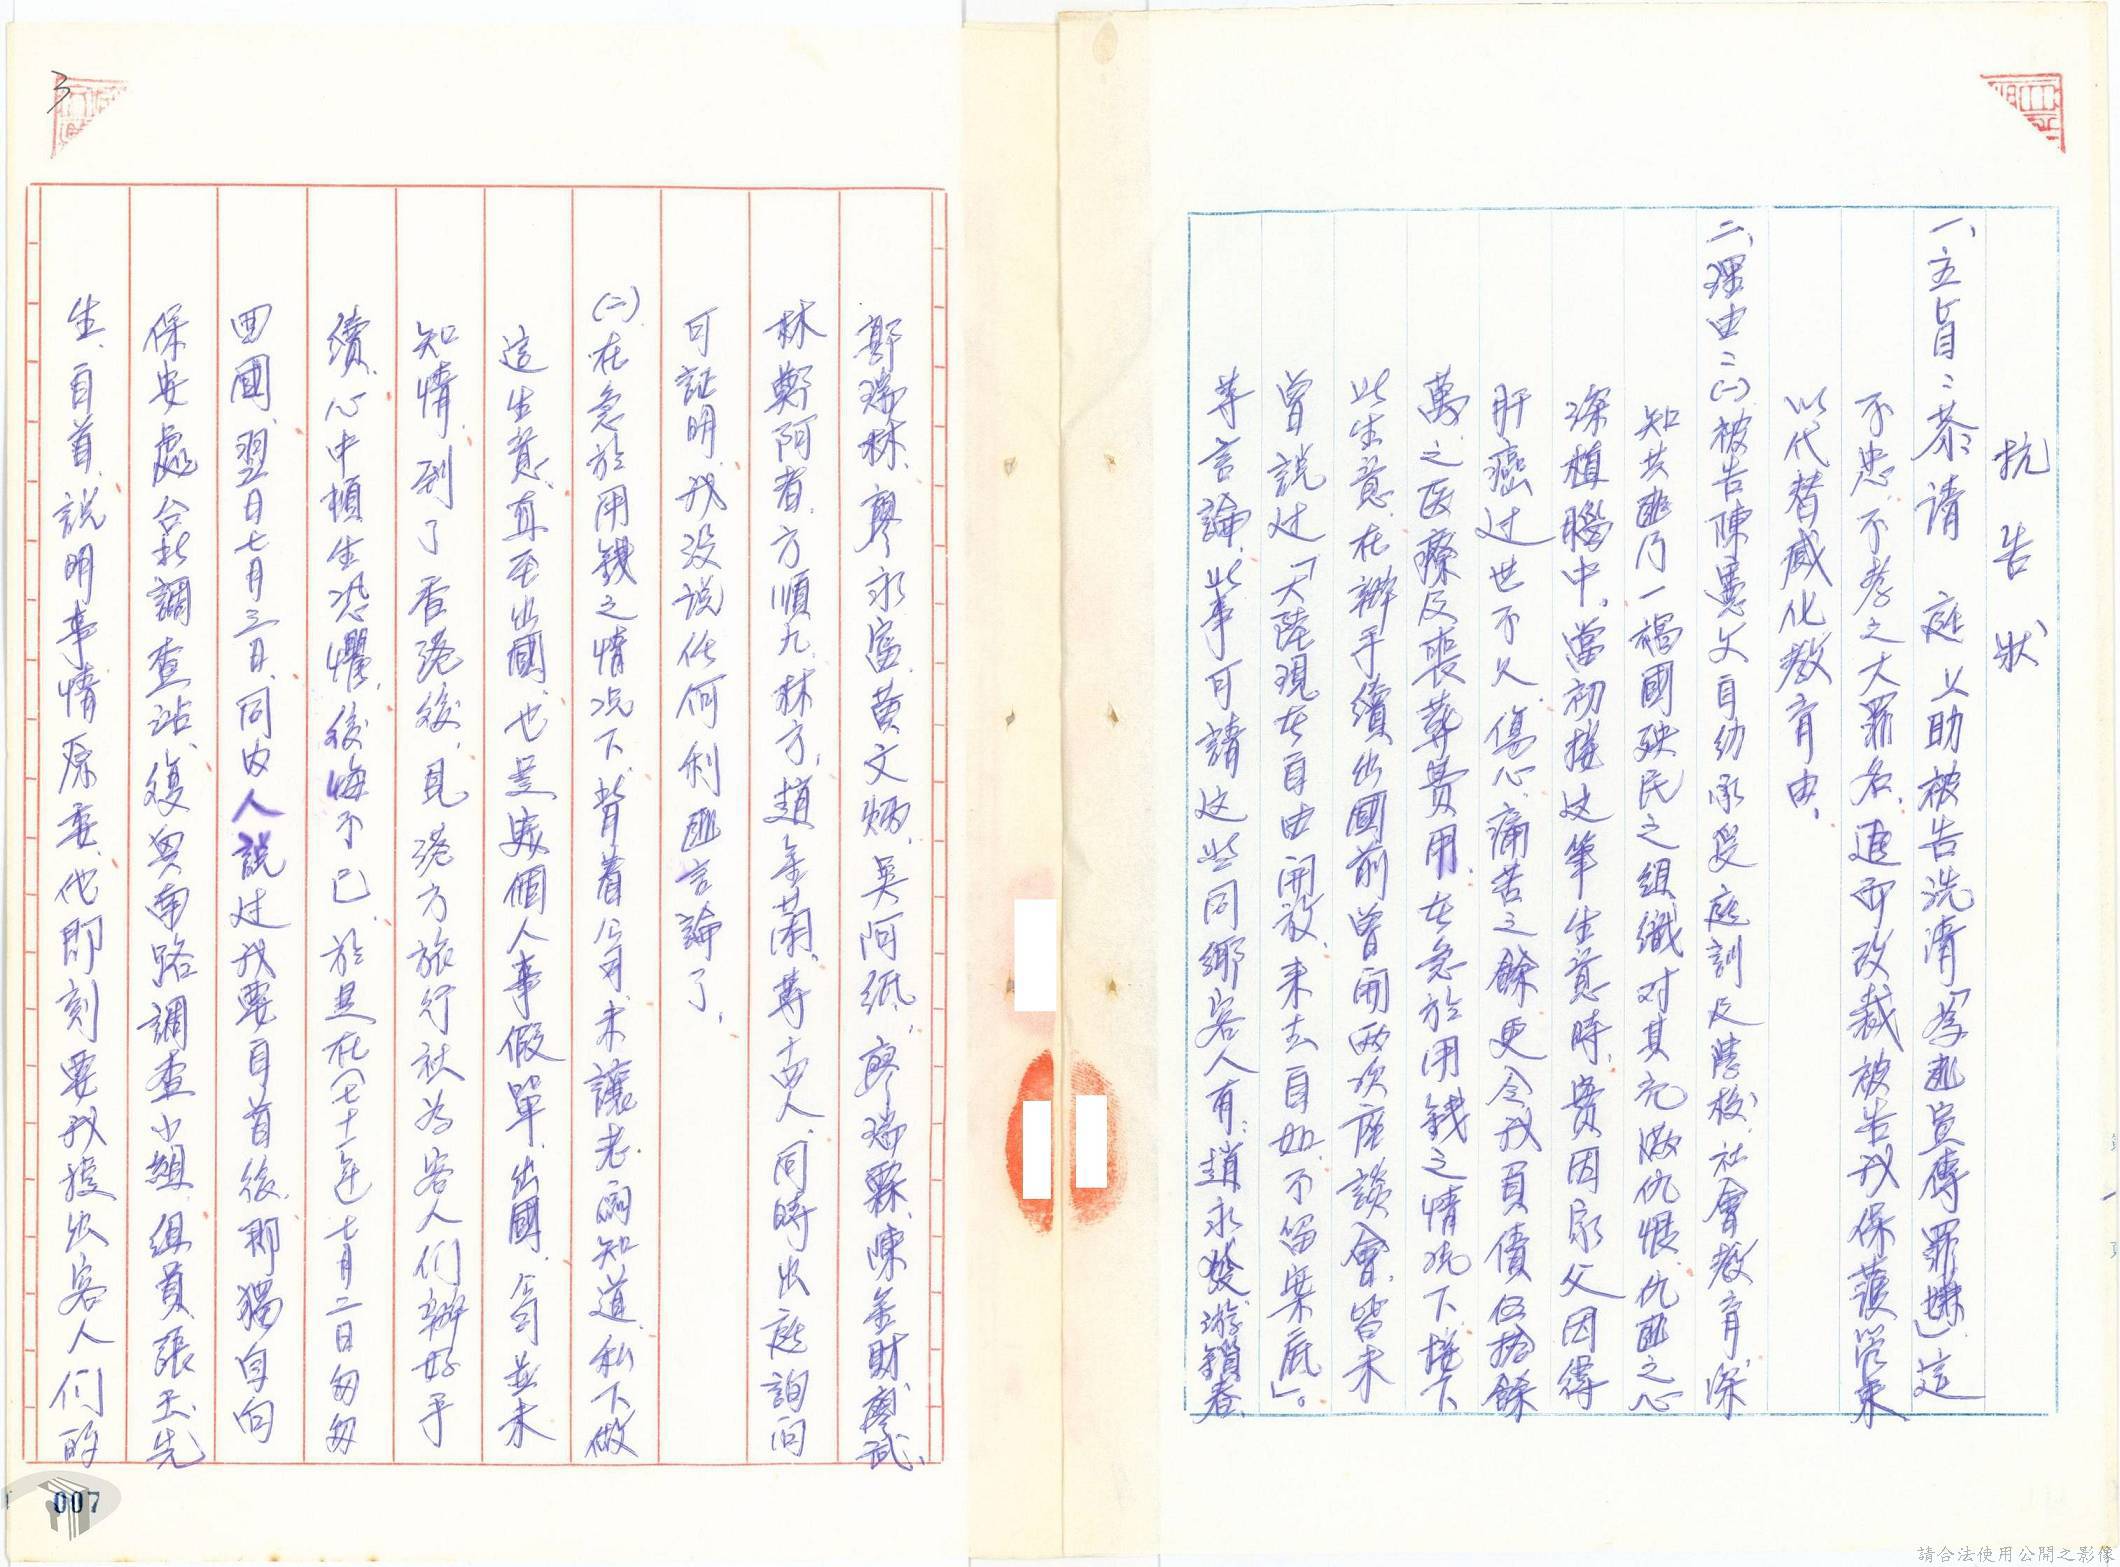 抗告狀
一、主旨：恭請　庭上助被告洗清「為匪宣傳罪嫌」這
不忠、不孝之大罪名，進而改裁被告我保護管束
以代替感化教育由。
二、理由：(一)被告陳墨文自幼承受庭訓及學校、社會教育深
知共匪乃一禍國殃民之組織對其充滿仇恨，仇匪之心
深植腦中。當初接这筆生意時，實因家父因得
肝癌过世不久，傷心、痛苦之餘更令我負債伍拾餘
萬之医療及喪葬費用，在急於用錢之情況下接下
此生意，在辦手續出國前曾開兩次座談會，皆未
曾説过「大陸現在自由開放，来去自如，不留案底」。
等言論，此事可請这些同鄉客人有：趙永發、游鎖春、
鄭瑞林、廖永富、黃文炳、吳阿紙、廖瑞霖、陳金財、廖武
林、鄭阿者、方順九、林方、趙金蘭、等十四人，同時出庭詢问
可証明，我没説任何利匪言論了，
(二)在急於用錢之情況下，背着公司，未讓老闆知道，私下做
這生意，直至出國，也是以個人事假單出國，公司並未
知情，到了香港後，見港方旅行社為客人们辦好手
續，心中頓生恐懼，後悔不已，於是在(七十一年)七月二日匆匆
回國，翌日七月三日，同內人説过我要自首後，即獨自向
保安處台北調查站，復興南路調查小組，組員張玉先
生，自首，説明事情原委，他即刻要我提出客人们的
3
007
請合法使用公開之影像